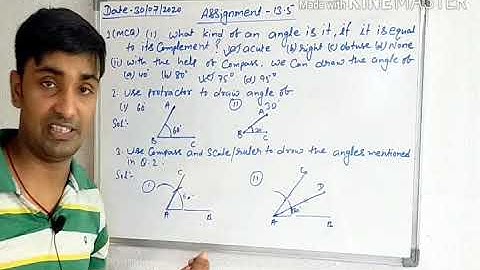 Made with KINEMASTER
Date-30/07/2020 Assignment-13.5
1(MCQ) (i) What kind of an angle is it, if it is equal
to its Complement? (a) acute (b) right (c) obtuse (d) None
(ii) with the help of Compass. we can draw the angle of
(a) 40° (b) 80° (c) 75° (d) 95°
2. Use protractor to draw angle of
(i) 60° (ii) 30
Sol:-
A
60°
B C
A
B C
3. Use Compass and Scale/ruler to draw the angles mentioned
in Q.2.
Sol:-
(i) C
60°
A B
(ii) C
D
A B